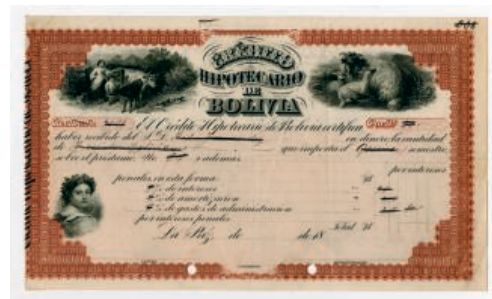 CRÉDITO
HIPOTECARIO
DE
BOLIVIA
El Crédito Hipotecario de Bolivia certifica
haber recibido del S.D. en dinero la cantidad
de que importa el semestre
sobre el préstamo No y además por intereses
penales en esta forma:
% de intereses
% de amortización
% de gastos de administración
por intereses penales
La Paz, de de 18 Total